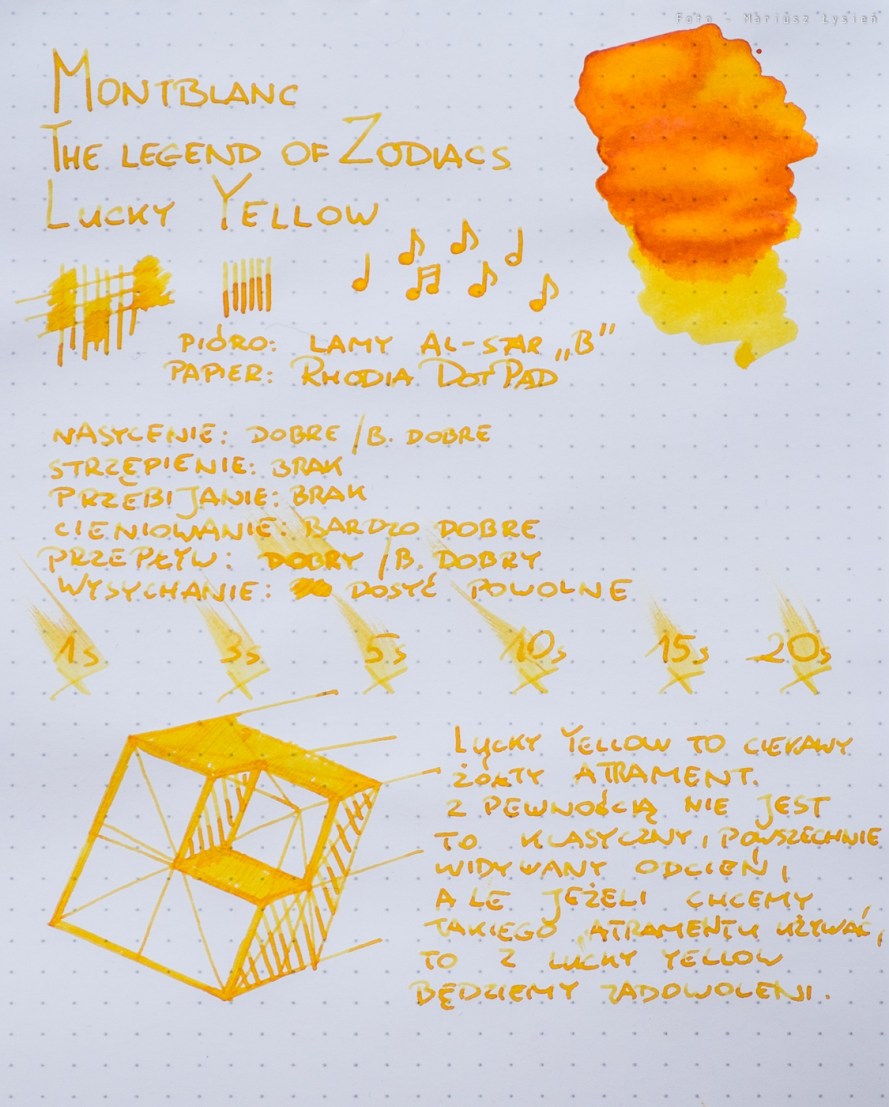 Foto - Mariusz Łysień
MONTBLANC
THE LEGEND OF ZODIACS
LUCKY YELLOW
PIÓRO: LAMY AL-STAR „B”
PAPIER: RHODIA DOTPAD
NASYCENIE: DOBRE / B. DOBRE
STRZĘPIENIE: BRAK
PRZEBIJANIE: BRAK
CIENIOWANIE: BARDZO DOBRE
PRZEPŁYW: DOBRY / B. DOBRY
WYSYCHANIE: DOSYĆ POWOLNE
1s 3s 5s 10s 15s 20s
LUCKY YELLOW TO CIEKAWY
ŻÓŁTY ATRAMENT.
Z PEWNOŚCIĄ NIE JEST
TO KLASYCZNY, POWSZECHNIE
WIDYWANY ODCIEŃ,
ALE JEŻELI CHCEMY
TAKIEGO ATRAMENTU UŻYWAĆ,
TO Z LUCKY YELLOW
BĘDZIEMY ZADOWOLENI.